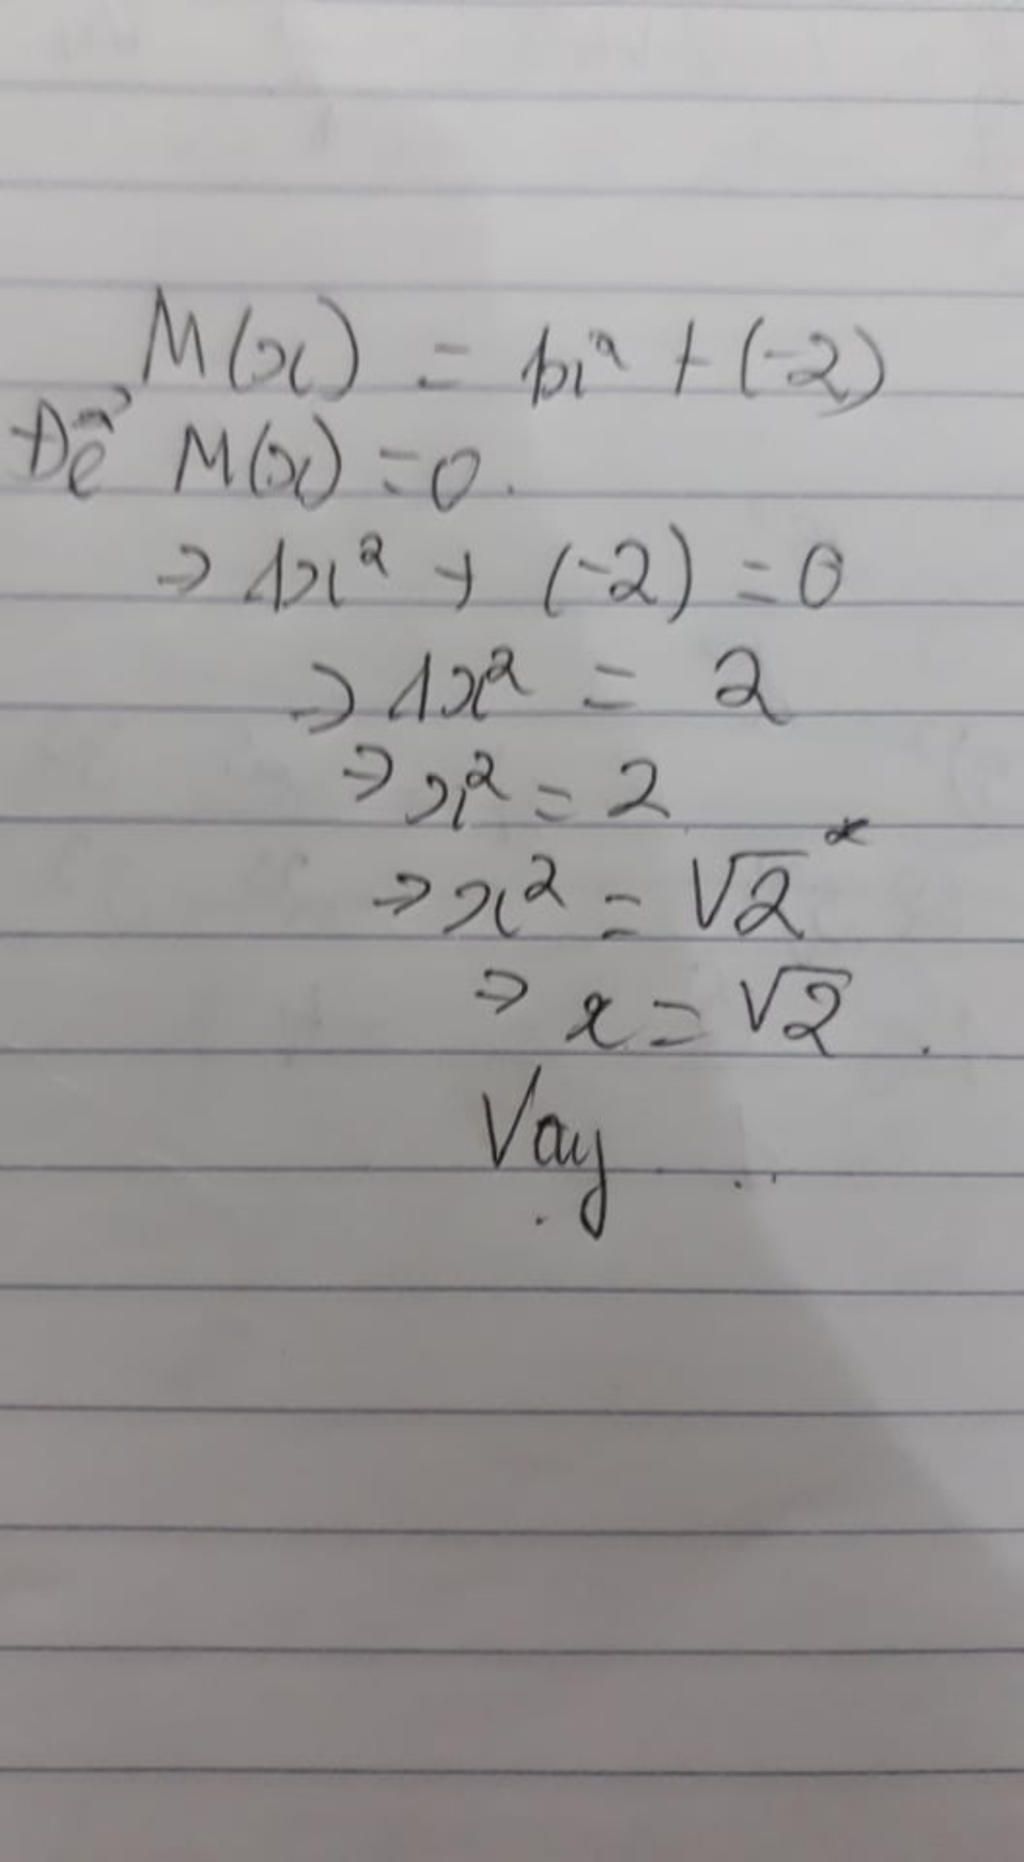 M(x) = 1x² + (-2)
Để M(x) = 0.
⇒ 1x² + (-2) = 0
⇒ 1x² = 2
⇒ x² = 2
⇒ x² = √2²
⇒ x = √2.
Vậy ...